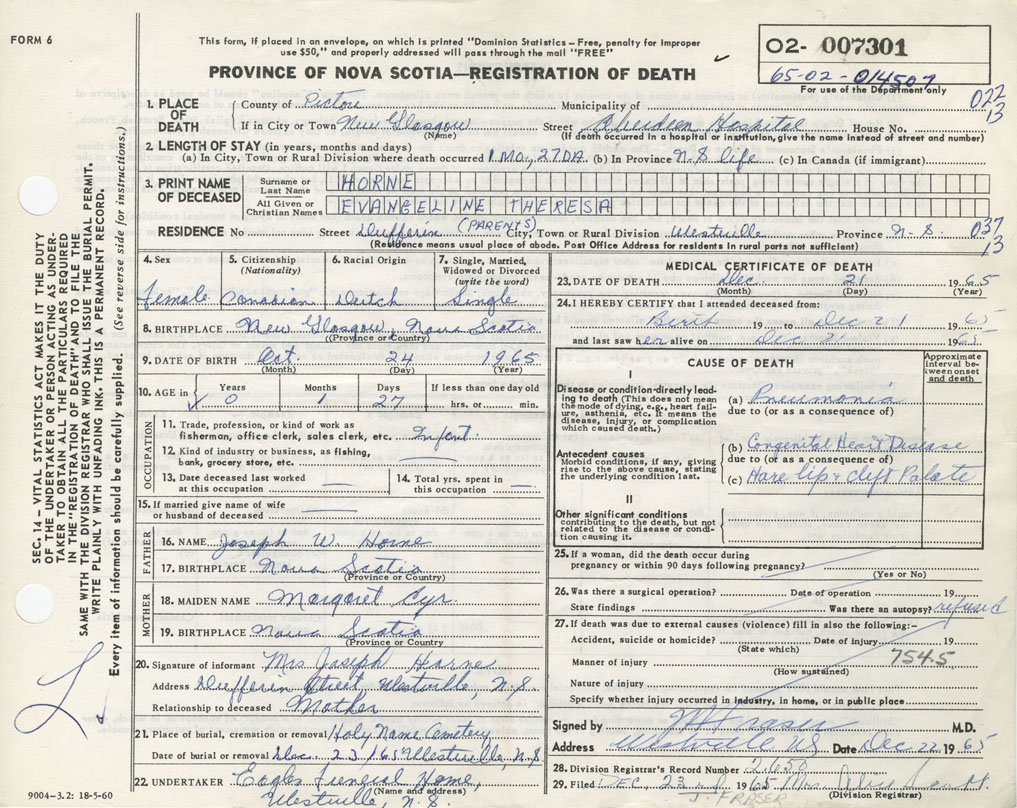 FORM 6
This form, if placed in an envelope, on which is printed "Dominion Statistics – Free, penalty for improper
use $50," and properly addressed will pass through the mail "FREE"
PROVINCE OF NOVA SCOTIA—REGISTRATION OF DEATH
O2- 007301
65-02-014507
For use of the Department only
022
13
SEC. 14 – VITAL STATISTICS ACT MAKES IT THE DUTY
OF THE UNDERTAKER OR PERSON ACTING AS UNDER-
TAKER TO OBTAIN ALL THE PARTICULARS REQUIRED
IN THE "REGISTRATION OF DEATH" AND TO FILE THE
SAME WITH THE DIVISION REGISTRAR WHO SHALL ISSUE THE BURIAL PERMIT.
WRITE PLAINLY WITH UNFADING INK. THIS IS A PERMANENT RECORD.
Every item of information should be carefully supplied. (See reverse side for instructions.)
1. PLACE OF DEATH
County of Pictou Municipality of
If in City or Town New Glasgow Street Aberdeen Hospital House No.
(Name) (If death occurred in a hospital or institution, give the name instead of street and number)
2. LENGTH OF STAY (in years, months and days)
(a) In City, Town or Rural Division where death occurred 1 MO., 27 DA. (b) In Province N.S life (c) In Canada (if immigrant)
3. PRINT NAME OF DECEASED
Surname or Last Name HORNE
All Given or Christian Names EVANGELINE THERESA
RESIDENCE No Street Dufferin (PARENTS) City, Town or Rural Division Westville Province N-S. 037
13
(Residence means usual place of abode. Post Office Address for residents in rural parts not sufficient)
4. Sex
Female
5. Citizenship (Nationality)
Canadian
6. Racial Origin
Dutch
7. Single, Married, Widowed or Divorced (write the word)
Single
8. BIRTHPLACE New Glasgow, Nova Scotia
(Province or Country)
9. DATE OF BIRTH Oct. 24 1965
(Month) (Day) (Year)
10. AGE in
Years 0
Months 1
Days 27
If less than one day old
hrs. or min.
OCCUPATION
11. Trade, profession, or kind of work as
fisherman, office clerk, sales clerk, etc. Infant
12. Kind of industry or business, as fishing,
bank, grocery store, etc.
13. Date deceased last worked
at this occupation
14. Total yrs. spent in
this occupation
15. If married give name of wife
or husband of deceased
FATHER
16. NAME Joseph W. Horne
17. BIRTHPLACE Nova Scotia
(Province or Country)
MOTHER
18. MAIDEN NAME Margaret Cyr.
19. BIRTHPLACE Nova Scotia
(Province or Country)
20. Signature of informant Mrs Joseph Horne
Address Dufferin Street, Westville, N.S.
Relationship to deceased Mother
21. Place of burial, cremation or removal Holy Name Cemetery
Date of burial or removal Dec. 23 1965 Westville, N.S
22. UNDERTAKER Eagles Funeral Home,
(Name and address)
Westville, N.S.
9004-3.2: 18-5-60
MEDICAL CERTIFICATE OF DEATH
23. DATE OF DEATH Dec. 21 1965
(Month) (Day) (Year)
24. I HEREBY CERTIFY that I attended deceased from:
Birth 19 to Dec 21 1965
and last saw her alive on Dec 21 1965
CAUSE OF DEATH
Approximate interval between onset and death
I
Disease or condition directly lead-
ing to death (This does not mean
the mode of dying, e.g., heart fail-
ure, asthenia, etc. It means the
disease, injury, or complication
which caused death.)
(a) Pneumonia
due to (or as a consequence of)
Antecedent causes
Morbid conditions, if any, giving
rise to the above cause, stating
the underlying condition last.
(b) Congenital Heart Disease
due to (or as a consequence of)
(c) Hare lip + cleft Palate
II
Other significant conditions
contributing to the death, but not
related to the disease or condi-
tion causing it.
25. If a woman, did the death occur during
pregnancy or within 90 days following pregnancy?
(Yes or No)
26. Was there a surgical operation? Date of operation 19
State findings Was there an autopsy? refused
27. If death was due to external causes (violence) fill in also the following:-
Accident, suicide or homicide? Date of injury 19
(State which)
Manner of injury 754.5
(How sustained)
Nature of injury
Specify whether injury occurred in industry, in home, or in public place
Signed by Fraser M.D.
Address Westville NS Date Dec 22 1965
28. Division Registrar's Record Number 2650
29. Filed DEC, 23 1965 Mrs
(Division Registrar)
J. FRASER